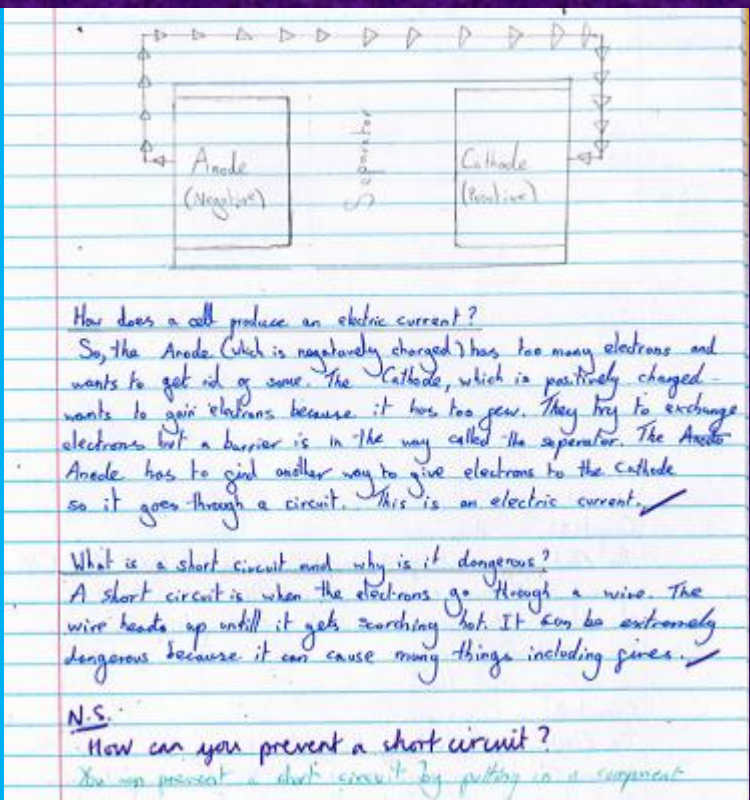 Anode
(Negative)
Separator
Cathode
(Positive)
How does a cell produce an electric current?
So, the Anode (which is negatavely charged) has too many electrons and
wants to get rid of some. The Cathode, which is positively charged
wants to gain electrons because it has too few. They try to exchange
electrons but a barrier is in the way called the seperator. The Anode
Anode has to find another way to give electrons to the Cathode
so it goes through a circuit. This is an electric current.
What is a short circuit and why is it dangerous?
A short circuit is when the electrons go through a wire. The
wire heats up untill it gets scorching hot. It can be extremely
dangerous because it can cause many things including fires.
N.S.
How can you prevent a short circuit?
You can prevent a short circuit by putting in a component